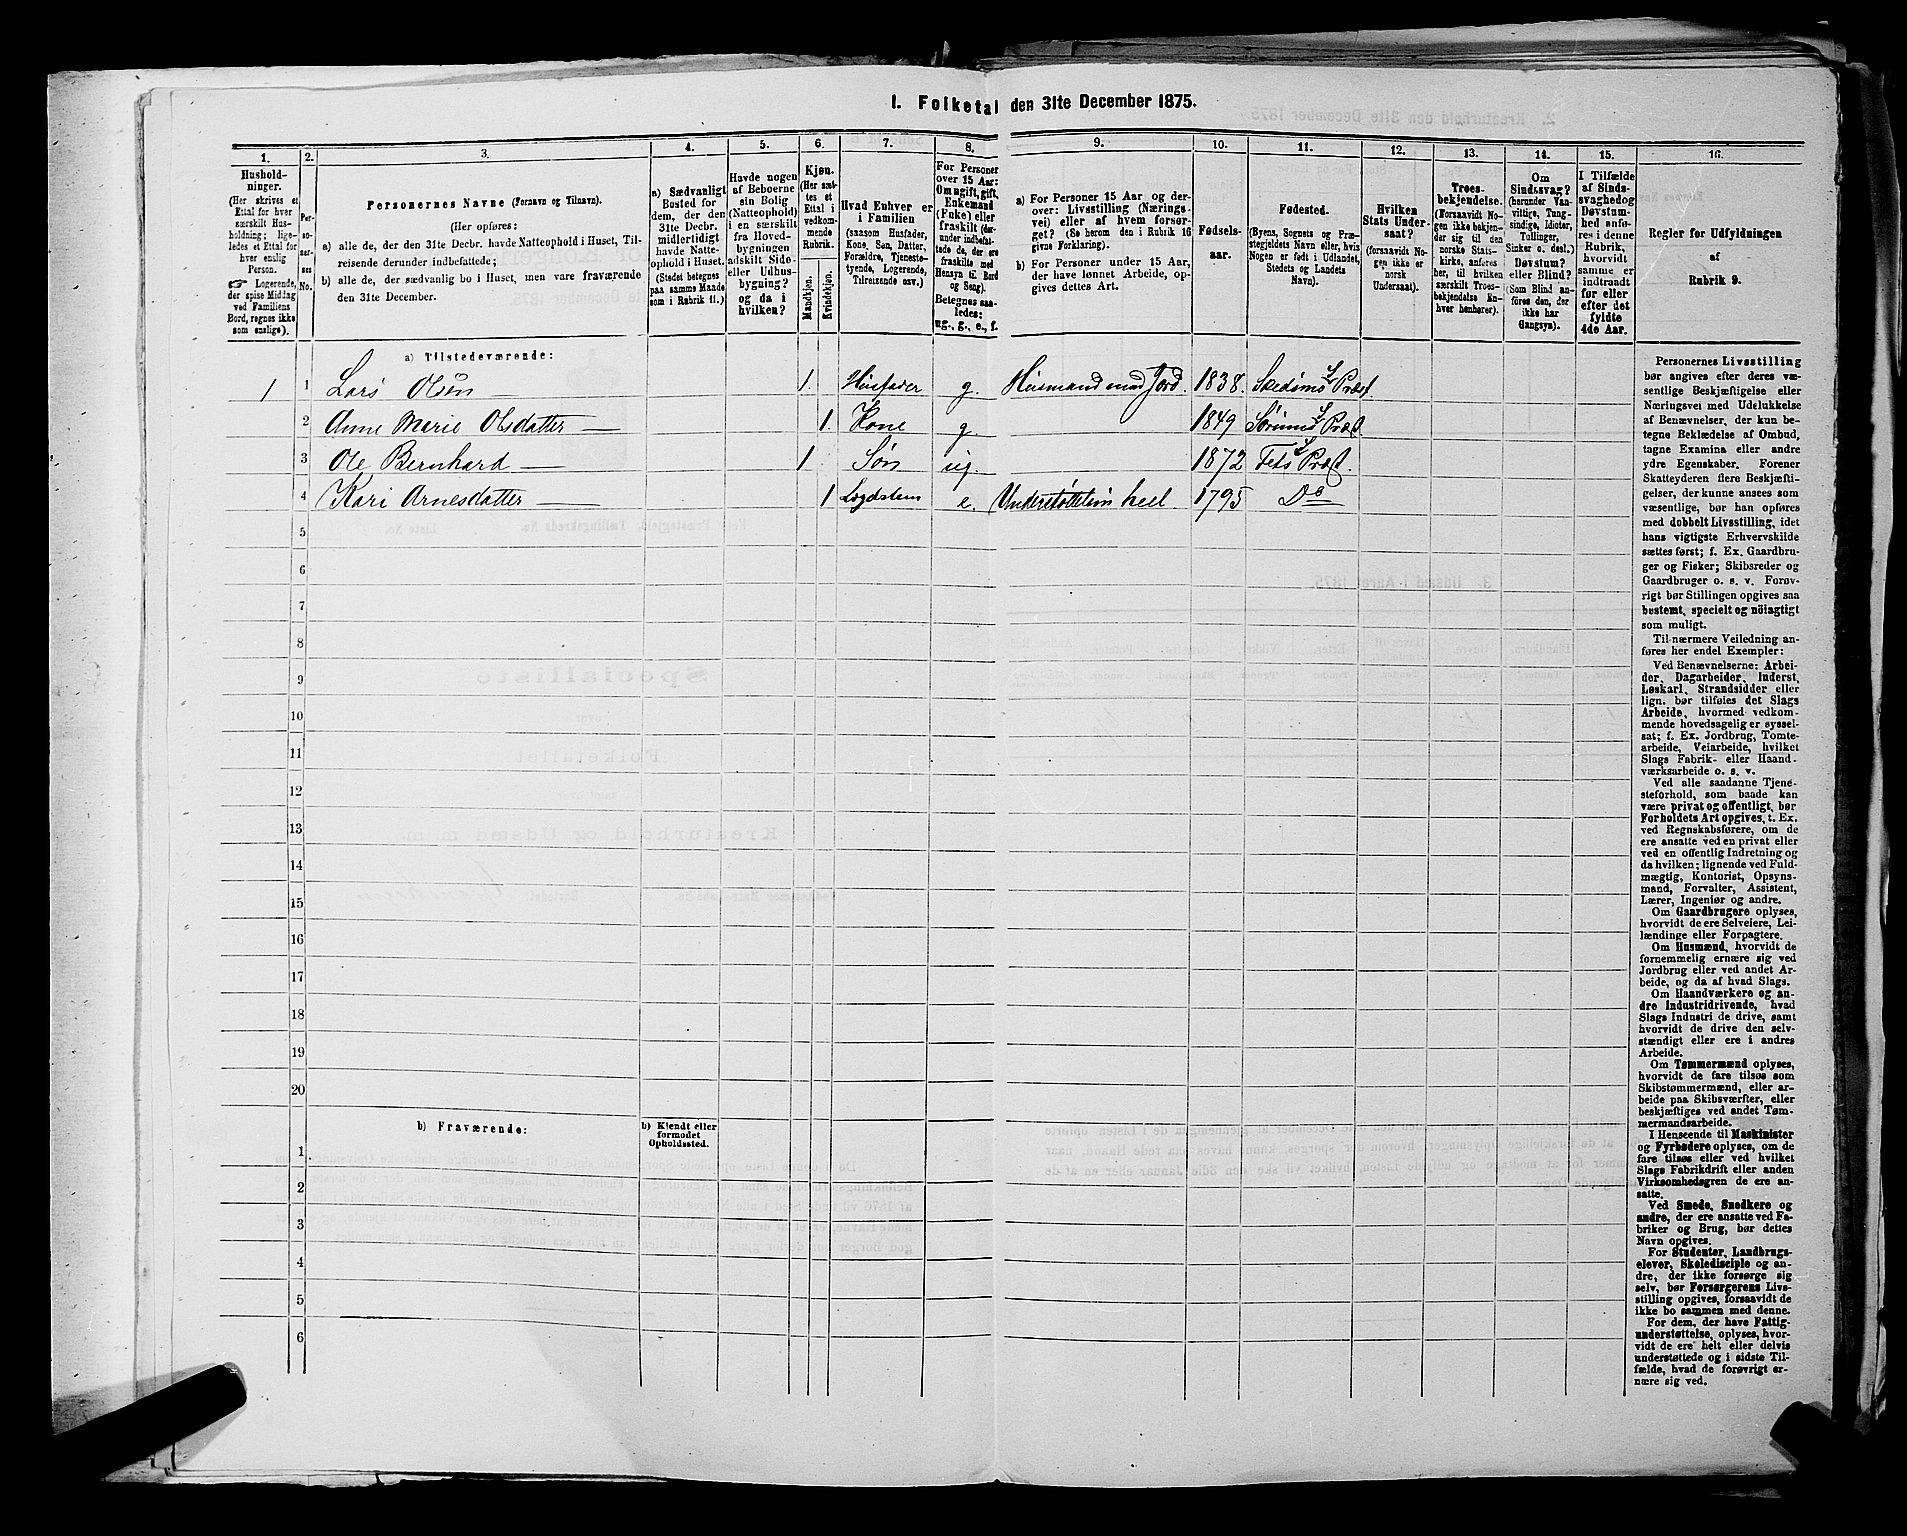 I. Folketal den 31te December 1875.
1. 2. 3. 4. 5. 6. 7. 8. 9. 10. 11. 12. 13. 14. 15. 16.
Hushold-
ninger.
(Her skrives et
Ettal for hver
særskilt Hus-
holdning; lige-
ledes et Ettal for
hver enslig
Person.
☞ Logerende,
der spise Middag
ved Familiens
Bord, regnes ikke
som enslige).
Per-
so-
ner-
nes
No.
Personernes Navne (Fornavn og Tilnavn).
(Her opføres:
a) alle de, der den 31te Decbr. havde Natteophold i Huset, Til-
reisende derunder indbefattede;
b) alle de, der sædvanlig bo i Huset, men vare fraværende
den 31te December.
a) Sædvanligt
Bosted for
dem, der den
31te Decbr.
midlertidigt
havde Natte-
ophold i Huset.
(Stedet betegnes
paa samme Maade
som i Rubrik 11.)
Havde nogen
af Beboerne
sin Bolig
(Natteophold)
i en særskilt
fra Hoved-
bygningen
adskilt Side-
eller Udhus-
bygning?
og da i
hvilken?
Kjøn.
(Her sæt-
tes et
Ettal i
vedkom-
mende
Rubrik.
Mandkjøn.
Kvindekjøn.
Hvad Enhver er
i Familien
(saasom Husfader,
Kone, Søn, Datter,
Forældre, Tjeneste-
tyende, Logerende,
Tilreisende osv.)
For Personer
over 15 Aar:
Om ugift, gift,
Enkemand
(Enke) eller
fraskilt (der-
under indbefat-
tede de, der ere
fraskilte med
Hensyn til Bord
og Seng).
Betegnes saa-
ledes:
ug., g., e., f.
a) For Personer 15 Aar og der-
over: Livsstilling (Nærings-
vei) eller af hvem forsør-
get? (Se herom den i Rubrik 16
givne Forklaring).
b) For Personer under 15 Aar,
der have lønnet Arbeide, op-
gives dettes Art.
Fødsels-
aar.
Fødested.
(Byens, Sognets og Præ-
stegjeldets Navn eller, hvis
Nogen er født i Udlandet,
Stedets og Landets
Navn).
Hvilken
Stats Under-
saat?
(forsaavidt No-
gen ikke er
norsk
Undersaat).
Troes-
bekjendelse.
(Forsaavidt No-
gen ikke bekjen-
der sig til den
norske Stats-
kirke, anføres
her, til hvilken
særskilt Troes-
bekjendelse En-
hver henhører).
Om
Sindssvag?
(herunder Van-
vittige, Tung-
sindige, Idioter,
Tullinger,
Sinker o. desl.)
Døvstum?
eller Blind?
(Som Blind an-
føres den, der
ikke har
Gangsyn).
I Tilfælde
af Sinds-
svaghed og
Døvstum-
hed anfø-
res i denne
Rubrik,
hvorvidt
samme er
indtraadt
før eller
efter det
fyldte
4de Aar.
Regler for Udfyldningen
af
Rubrik 9.
a) Tilstedeværende:
1 1 Lars Olsen 1. Husfader g. Husmand med Jord. 1838. Skedsmo Præst.
2 Anne Marie Olsdatter 1. Kone g. 1849 Sørums Præst.
3 Ole Bernhard 1 Søn ug. 1872 Fets Præst.
4 Kari Arnesdatter 1 Lægdslem e. Understøttes heel. 1795 Do
5
6
7
8
9
10
11
12
13
14
15
16
17
18
19
20
b) Fraværende:
b) Kjendt eller
formodet
Opholdssted.
1
2
3
4
5
6
Personernes Livsstilling
bør angives efter deres væ-
sentlige Beskjæftigelse eller
Næringsvei med Udelukkelse
af Benævnelser, der kun be-
tegne Beklædelse af Ombud,
tagne Examina eller andre
ydre Egenskaber. Forener
Skatteyderen flere Beskjæfti-
gelser, der kunne ansees som
væsentlige, bør han opføres
med dobbelt Livsstilling, idet
hans vigtigste Erhvervskilde
sættes først; f. Ex. Gaardbru-
ger og Fisker; Skibsreder og
Gaardbruger o. s. v. Forøv-
rigt bør Stillingen opgives saa
bestemt, specielt og nöiagtigt
som muligt.
Til nærmere Veiledning an-
føres her endel Exempler:
Ved Benævnelserne: Arbei-
der, Dagarbeider, Inderst,
Løskarl, Strandsidder eller
lign. bør tilføies det Slags
Arbeide, hvormed vedkom-
mende hovedsagelig er syssel-
sat; f. Ex. Jordbrug, Tomte-
arbeide, Veiarbeide, hvilket
Slags Fabrik- eller Haand-
værksarbeide o. s. v.
Ved alle saadanne Tjene-
steforhold, som baade kan
være privat og offentligt, bør
Forholdets Art opgives, t. Ex.
ved Regnskabsførere, om de
ere ansatte ved en privat eller
ved en offentlig Indretning og
da hvilken; lignende ved Fuld-
mægtig, Kontorist, Opsyns-
mand, Forvalter, Assistent,
Lærer, Ingeniør og andre.
Om Gaardbrugere oplyses,
hvorvidt de ere Selveiere, Lei-
lændinge eller Forpagtere.
Om Husmænd, hvorvidt de
fornemmelig ernære sig ved
Jordbrug eller ved andet Ar-
beide, og da af hvad Slags.
Om Haandværkere og an-
dre Industridrivende, hvad
Slags Industri de drive, samt
hvorvidt de drive den selv-
stændigt eller ere i andres
Arbeide.
Om Tømmermænd oplyses,
hvorvidt de fare tilsøs som
Skibstømmermænd, eller ar-
beide paa Skibsværfter, eller
beskjæftiges ved andet Tøm-
mermandsarbeide.
I Henseende til Maskinister
og Fyrbødere oplyses, om de
fare tilsøs eller ved hvilket
Slags Fabrikdrift eller anden
Virksomhedsgren de ere an-
satte.
Ved Smede, Snedkere og
andre, der ere ansatte ved Fa-
briker og Brug, bør dettes
Navn opgives.
For Studenter, Landbrugs-
elever, Skoledisciple og an-
dre, der ikke forsørge sig
selv, bør Forsørgerens Livs-
stilling opgives, forsaavidt de
ikke bo sammen med denne.
For dem, der have Fattig-
understøttelse, oplyses, hvor-
vidt de ere helt eller delvis
understøttede og i sidste Til-
fælde, hvad de forøvrigt er-
nære sig ved.